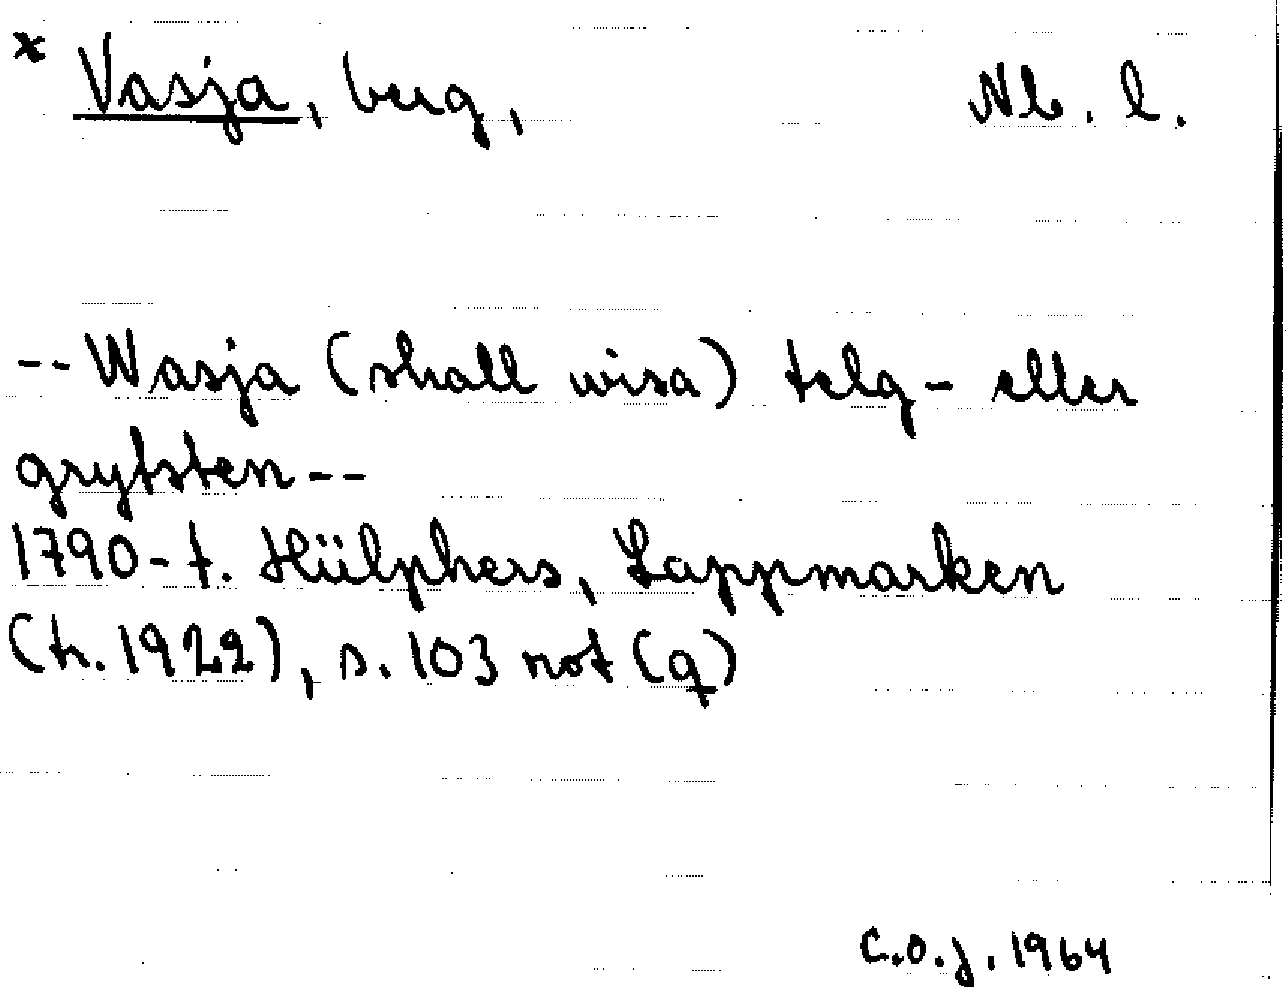 x Vasja, berg, Nb. l.
-- Wasja (skall wisa) telg- eller
grytsten --
1790-t. Hülphers, Lappmarken
(tr. 1922), s. 103 not (q)
C.O.J. 1964